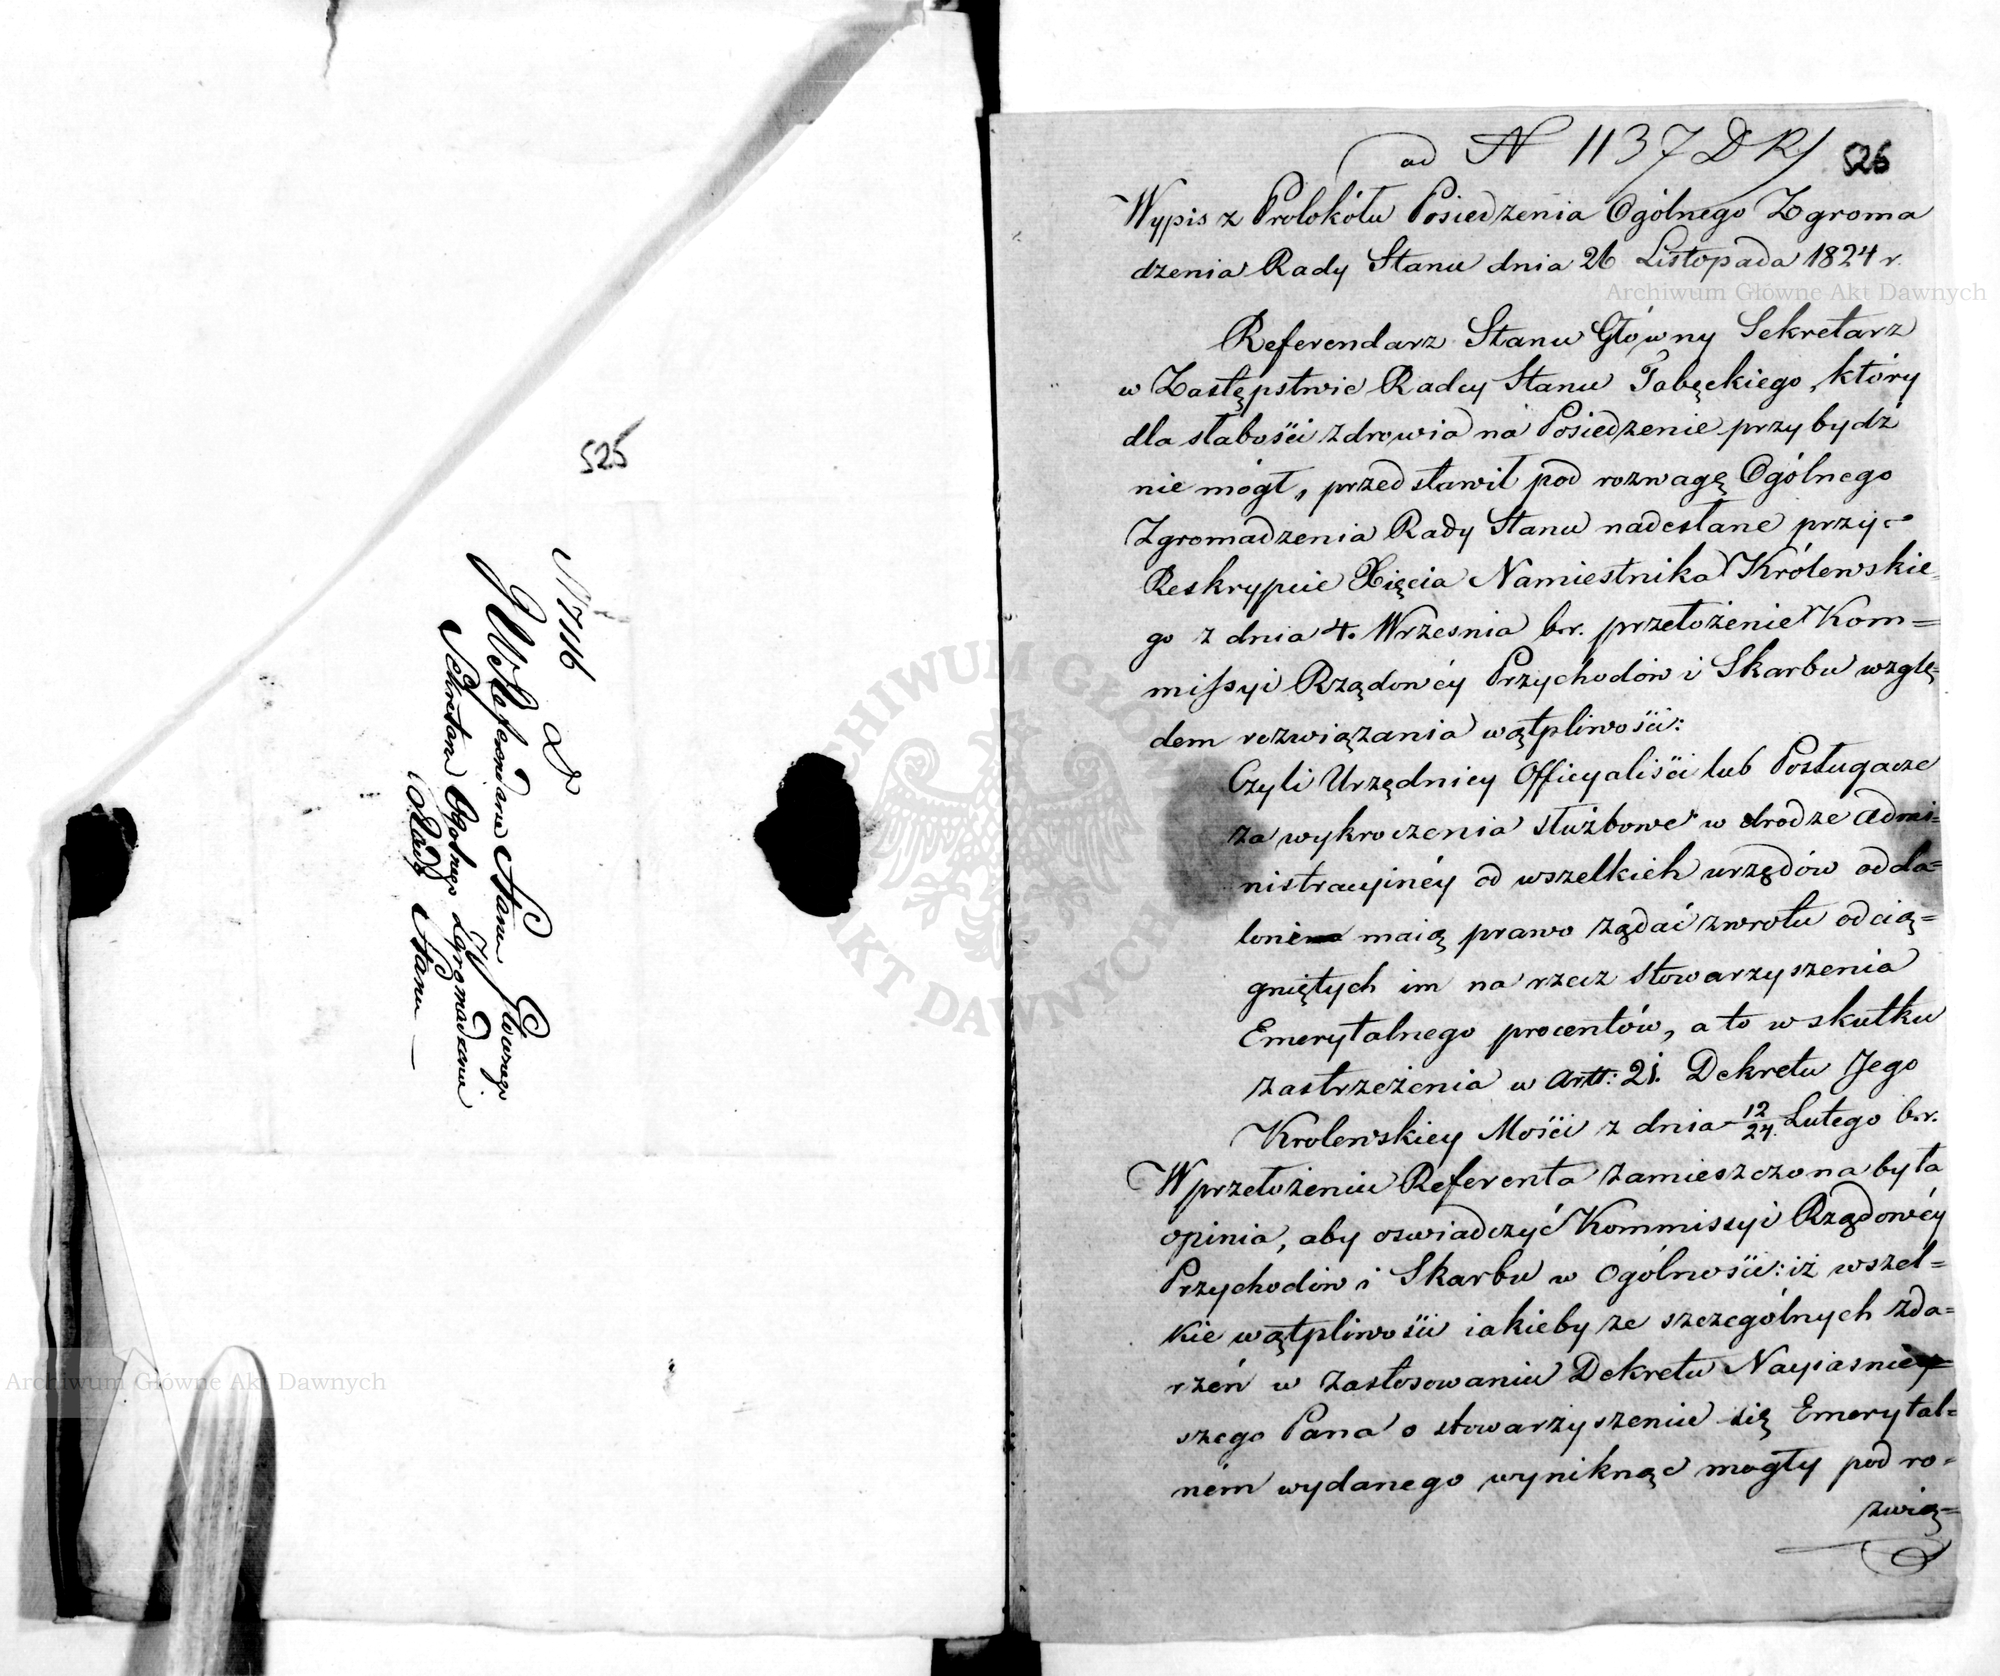 525
N 7116
Do
JW. Referendarza Stanu Głównego
Sekretarza Ogólnego Zgromadzenia
Rady Stanu
ad N 1137 D R S
526
Wypis z Protokółu Posiedzenia Ogólnego Zgroma
dzenia Rady Stanu dnia 26 Listopada 1824 r.
Referendarz Stanu Główny Sekretarz
w Zastępstwie Radcy Stanu Tabęckiego, który
dla słabości zdrowia na Posiedzenie przybydź
nie mógł, przedstawił pod rozwagę Ogólnego
Zgromadzenia Rady Stanu nadesłane przy
Reskrypcie Xięcia Namiestnika Królewskie=
go z dnia 4. Września b.r. przełożenie Kom=
missyi Rządowéy Przychodów i Skarbu wzglę=
dem rozwiązania wątpliwości:
Czyli Urzędnicy Officyaliści lub Posługacze
za wykroczenia służbowe w drodze admi=
nistracyinéy od wszelkich urzędów odda=
leni maią prawo żądać zwrotu odcią=
gniętych im na rzecz stowarzyszenia
Emerytalnego procentów, a to w skutku
zastrzeżenia w artt: 21. Dekretu Jego
Krolewskiey Mości z dnia 12/24. Lutego b.r.
W przełożeniu Referenta zamieszczona była
opinia, aby oswiadczyć Kommissyi Rządowéy
Przychodów i Skarbu w ogólności: iż wszel=
kie wątpliwości iakieby ze szczególnych zda=
rzeń w zastosowaniu Dekretu Nayiasniey=
szego Pana o stowarzyszeniu się Emerytal=
ném wydanego wyniknąć mogły pod ro=
zwią=
Archiwum Główne Akt Dawnych
Archiwum Główne Akt Dawnych
ARCHIWUM GŁÓWNE AKT DAWNYCH